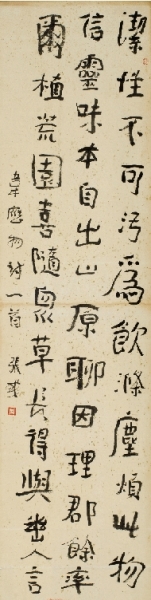 潔性不可污為飲滌塵煩此物
信靈味本自出山原聊因理郡餘率
爾植荒園喜隨眾草長得與幽人言
韋應物詩一首 張